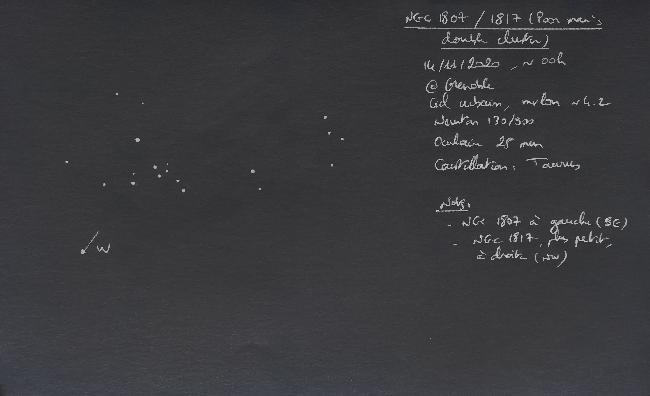 NGC 1807 / 1817 (Poor man's
double cluster)
14/11/2020, ~ 00h
@ Grenoble
Ciel urbain, mvlon ~4.2
Newton 130/900
Oculaire 25 mm
Constellation: Taurus
Notes:
- NGC 1807 à gauche (SE)
- NGC 1817, plus petit,
à droite (NW)
W